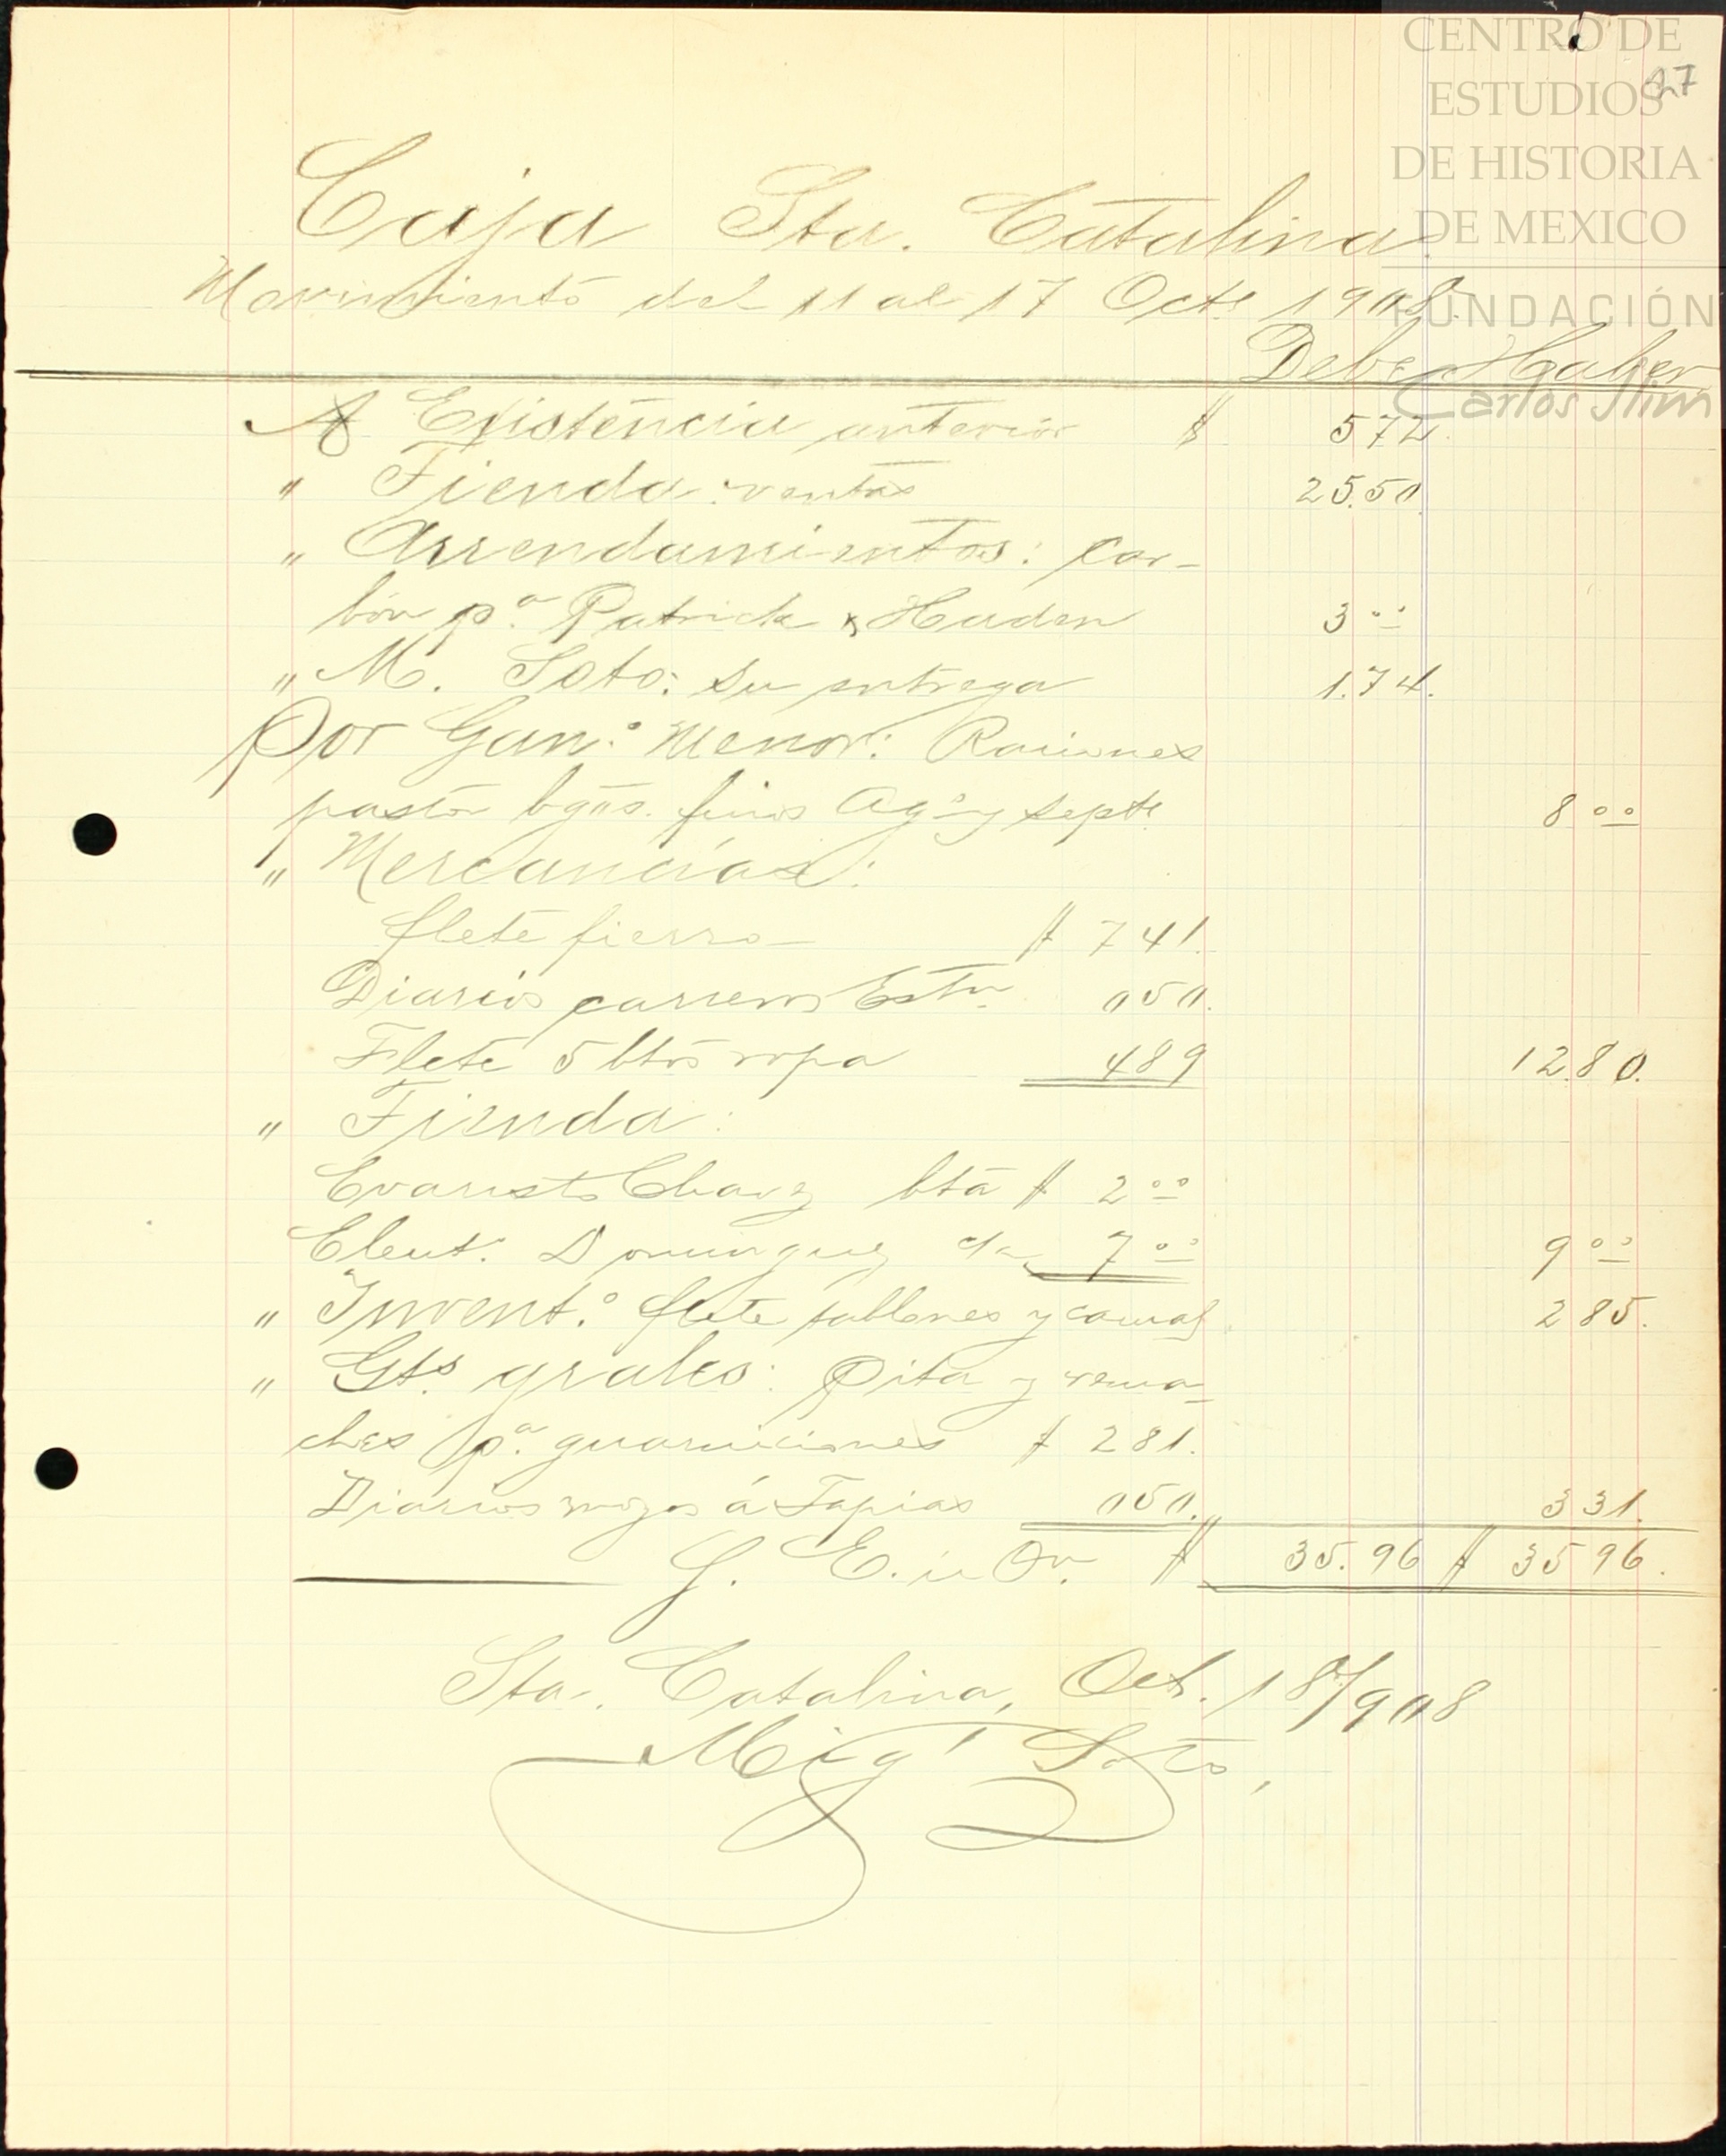 CENTRO DE
ESTUDIOS
DE HISTORIA
DE MEXICO
FUNDACIÓN
Carlos Slim
27
Caja Sta. Catalina.
Movimiento del 11 al 17 Octe 1908.
Debe Haber
A Existencia anterior $ 572.
" Tienda: ventas 25.50.
" Arrendamientos: Car-
bón pa. Patrick & Haden 3 oo
" M. Soto: su entrega 1.74.
Por Gano. Menor: Raciones
pastor finos Ago. y Septe. 8 oo
" Mercancías:
flete fierro $ 741.
Diarios carrero Esta. 050.
Flete 5 btos ropa 489 12.80.
" Tienda:
Evaristo Chavez bta $ 2 oo
Eleut. Dominguez 7 oo 9 oo
" Invento. flete tablones y camas. 285.
" Gts. grales: Pita y rema-
ches pa. guarniciones $ 281.
Diarios mozos á Tapias 050. 331.
S. E. ú O. $ 35.96 $ 35 96.
Sta. Catalina, Oct. 18/908
Migl Soto,